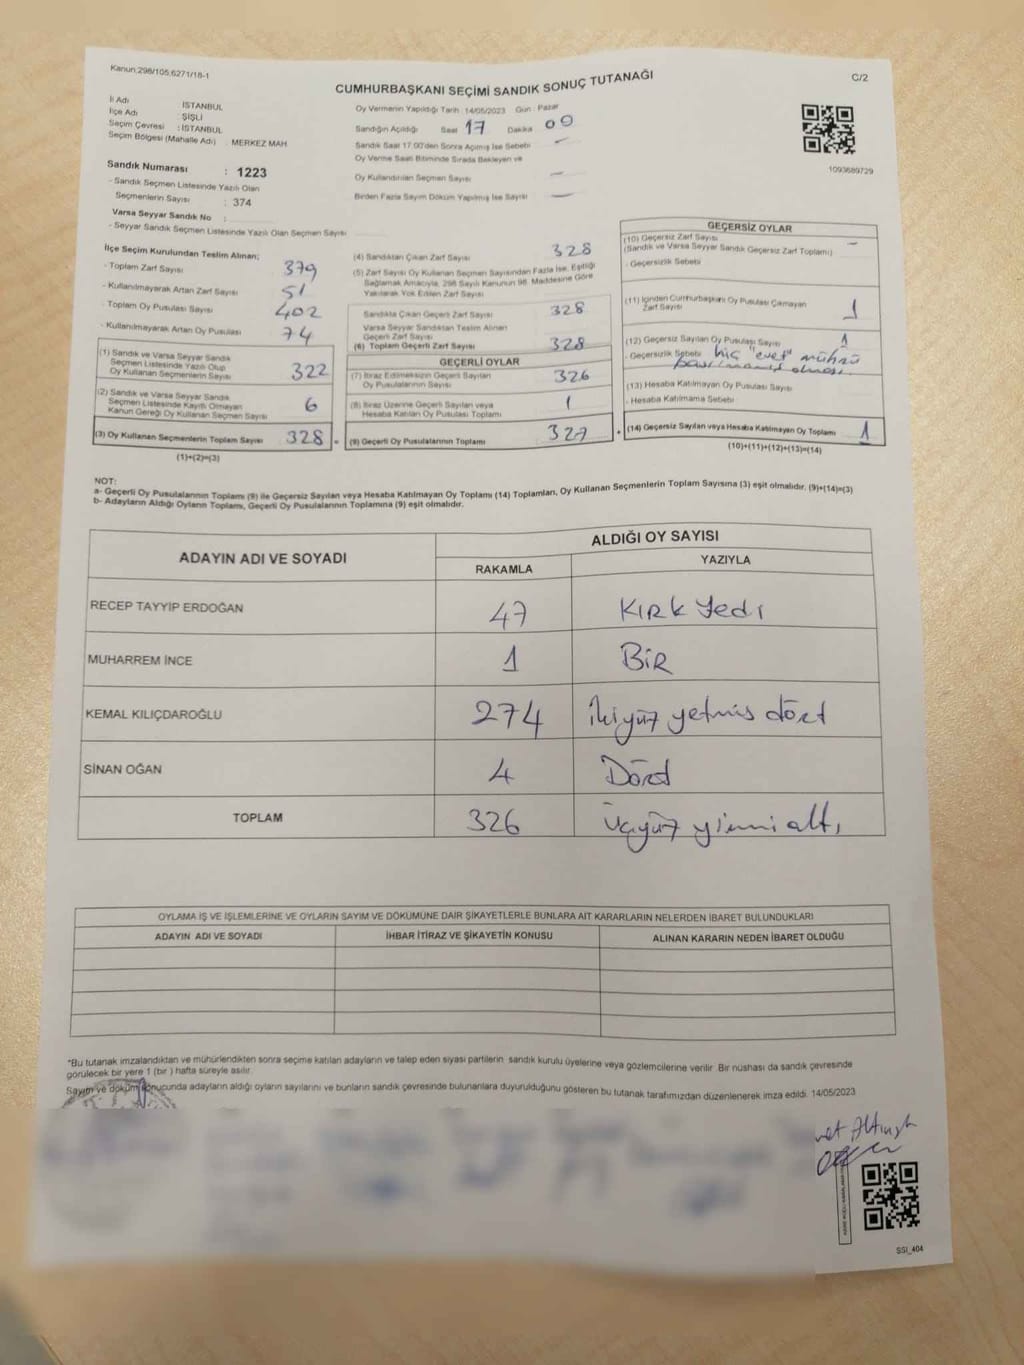 Kanun:298/105,6271/18-1
C/2
CUMHURBAŞKANI SEÇİMİ SANDIK SONUÇ TUTANAĞI
İl Adı : İSTANBUL
İlçe Adı : ŞİŞLİ
Seçim Çevresi : İSTANBUL
Seçim Bölgesi (Mahalle Adı) : MERKEZ MAH.
Sandık Numarası : 1223
- Sandık Seçmen Listesinde Yazılı Olan
Seçmenlerin Sayısı : 374
Varsa Seyyar Sandık No :
- Seyyar Sandık Seçmen Listesinde Yazılı Olan Seçmen Sayısı
Oy Vermenin Yapıldığı Tarih : 14/05/2023 Gün : Pazar
Sandığın Açıldığı Saat 17 Dakika 09
Sandık Saat 17.00'den Sonra Açılmış İse Sebebi —
Oy Verme Saati Bitiminde Sırada Bekleyen ve
Oy Kullandırılan Seçmen Sayısı —
Birden Fazla Sayım Döküm Yapılmış İse Sayısı —
1093689729
İlçe Seçim Kurulundan Teslim Alınan;
- Toplam Zarf Sayısı 379
- Kullanılmayarak Artan Zarf Sayısı 51
- Toplam Oy Pusulası Sayısı 402
- Kullanılmayarak Artan Oy Pusulası 74
(1) Sandık ve Varsa Seyyar Sandık
Seçmen Listesinde Yazılı Olup
Oy Kullanan Seçmenlerin Sayısı 322
(2) Sandık ve Varsa Seyyar Sandık
Seçmen Listesinde Kayıtlı Olmayan
Kanun Gereği Oy Kullanan Seçmen Sayısı 6
(3) Oy Kullanan Seçmenlerin Toplam Sayısı 328 =
(1)+(2)=(3)
(4) Sandıktan Çıkan Zarf Sayısı 328
(5) Zarf Sayısı Oy Kullanan Seçmen Sayısından Fazla İse, Eşitliği
Sağlamak Amacıyla, 298 Sayılı Kanunun 98. Maddesine Göre
Yakılarak Yok Edilen Zarf Sayısı
Sandıkta Çıkan Geçerli Zarf Sayısı 328
Varsa Seyyar Sandıktan Teslim Alınan
Geçerli Zarf Sayısı
(6) Toplam Geçerli Zarf Sayısı 328
GEÇERLİ OYLAR
(7) İtiraz Edilmeksizin Geçerli Sayılan
Oy Pusulalarının Sayısı 326
(8) İtiraz Üzerine Geçerli Sayılan veya
Hesaba Katılan Oy Pusulası Toplamı 1
(9) Geçerli Oy Pusulalarının Toplamı 327 +
GEÇERSİZ OYLAR
(10) Geçersiz Zarf Sayısı —
(Sandık ve Varsa Seyyar Sandık Geçersiz Zarf Toplamı)
- Geçersizlik Sebebi
(11) İçinden Cumhurbaşkanı Oy Pusulası Çıkmayan
Zarf Sayısı 1
(12) Geçersiz Sayılan Oy Pusulası Sayısı 1
- Geçersizlik Sebebi hiç "evet" mührü
basılmamış olması.
(13) Hesaba Katılmayan Oy Pusulası Sayısı
- Hesaba Katılmama Sebebi
(14) Geçersiz Sayılan veya Hesaba Katılmayan Oy Toplamı 1
(10)+(11)+(12)+(13)=(14)
NOT:
a- Geçerli Oy Pusulalarının Toplamı (9) ile Geçersiz Sayılan veya Hesaba Katılmayan Oy Toplamı (14) Toplamları, Oy Kullanan Seçmenlerin Toplam Sayısına (3) eşit olmalıdır. (9)+(14)=(3)
b- Adayların Aldığı Oyların Toplamı, Geçerli Oy Pusulalarının Toplamına (9) eşit olmalıdır.
ADAYIN ADI VE SOYADI
ALDIĞI OY SAYISI
RAKAMLA YAZIYLA
RECEP TAYYİP ERDOĞAN 47 Kırk Yedi
MUHARREM İNCE 1 BİR
KEMAL KILIÇDAROĞLU 274 ikiyüz yetmiş dört
SİNAN OĞAN 4 Dört
TOPLAM 326 üçyüz yirmi altı
OYLAMA İŞ VE İŞLEMLERİNE VE OYLARIN SAYIM VE DÖKÜMÜNE DAİR ŞİKAYETLERLE BUNLARA AİT KARARLARIN NELERDEN İBARET BULUNDUKLARI
ADAYIN ADI VE SOYADI İHBAR İTİRAZ VE ŞİKAYETİN KONUSU ALINAN KARARIN NEDEN İBARET OLDUĞU
*Bu tutanak imzalandıktan ve mühürlendikten sonra seçime katılan adayların ve talep eden siyasi partilerin sandık kurulu üyelerine veya gözlemcilerine verilir. Bir nüshası da sandık çevresinde
görülecek bir yere 1 (bir) hafta süreyle asılır.
Sayım ve döküm sonucunda adayların aldığı oyların sayılarını ve bunların sandık çevresinde bulunanlara duyurulduğunu gösteren bu tutanak tarafımızdan düzenlenerek imza edildi. 14/05/2023
SSI_404